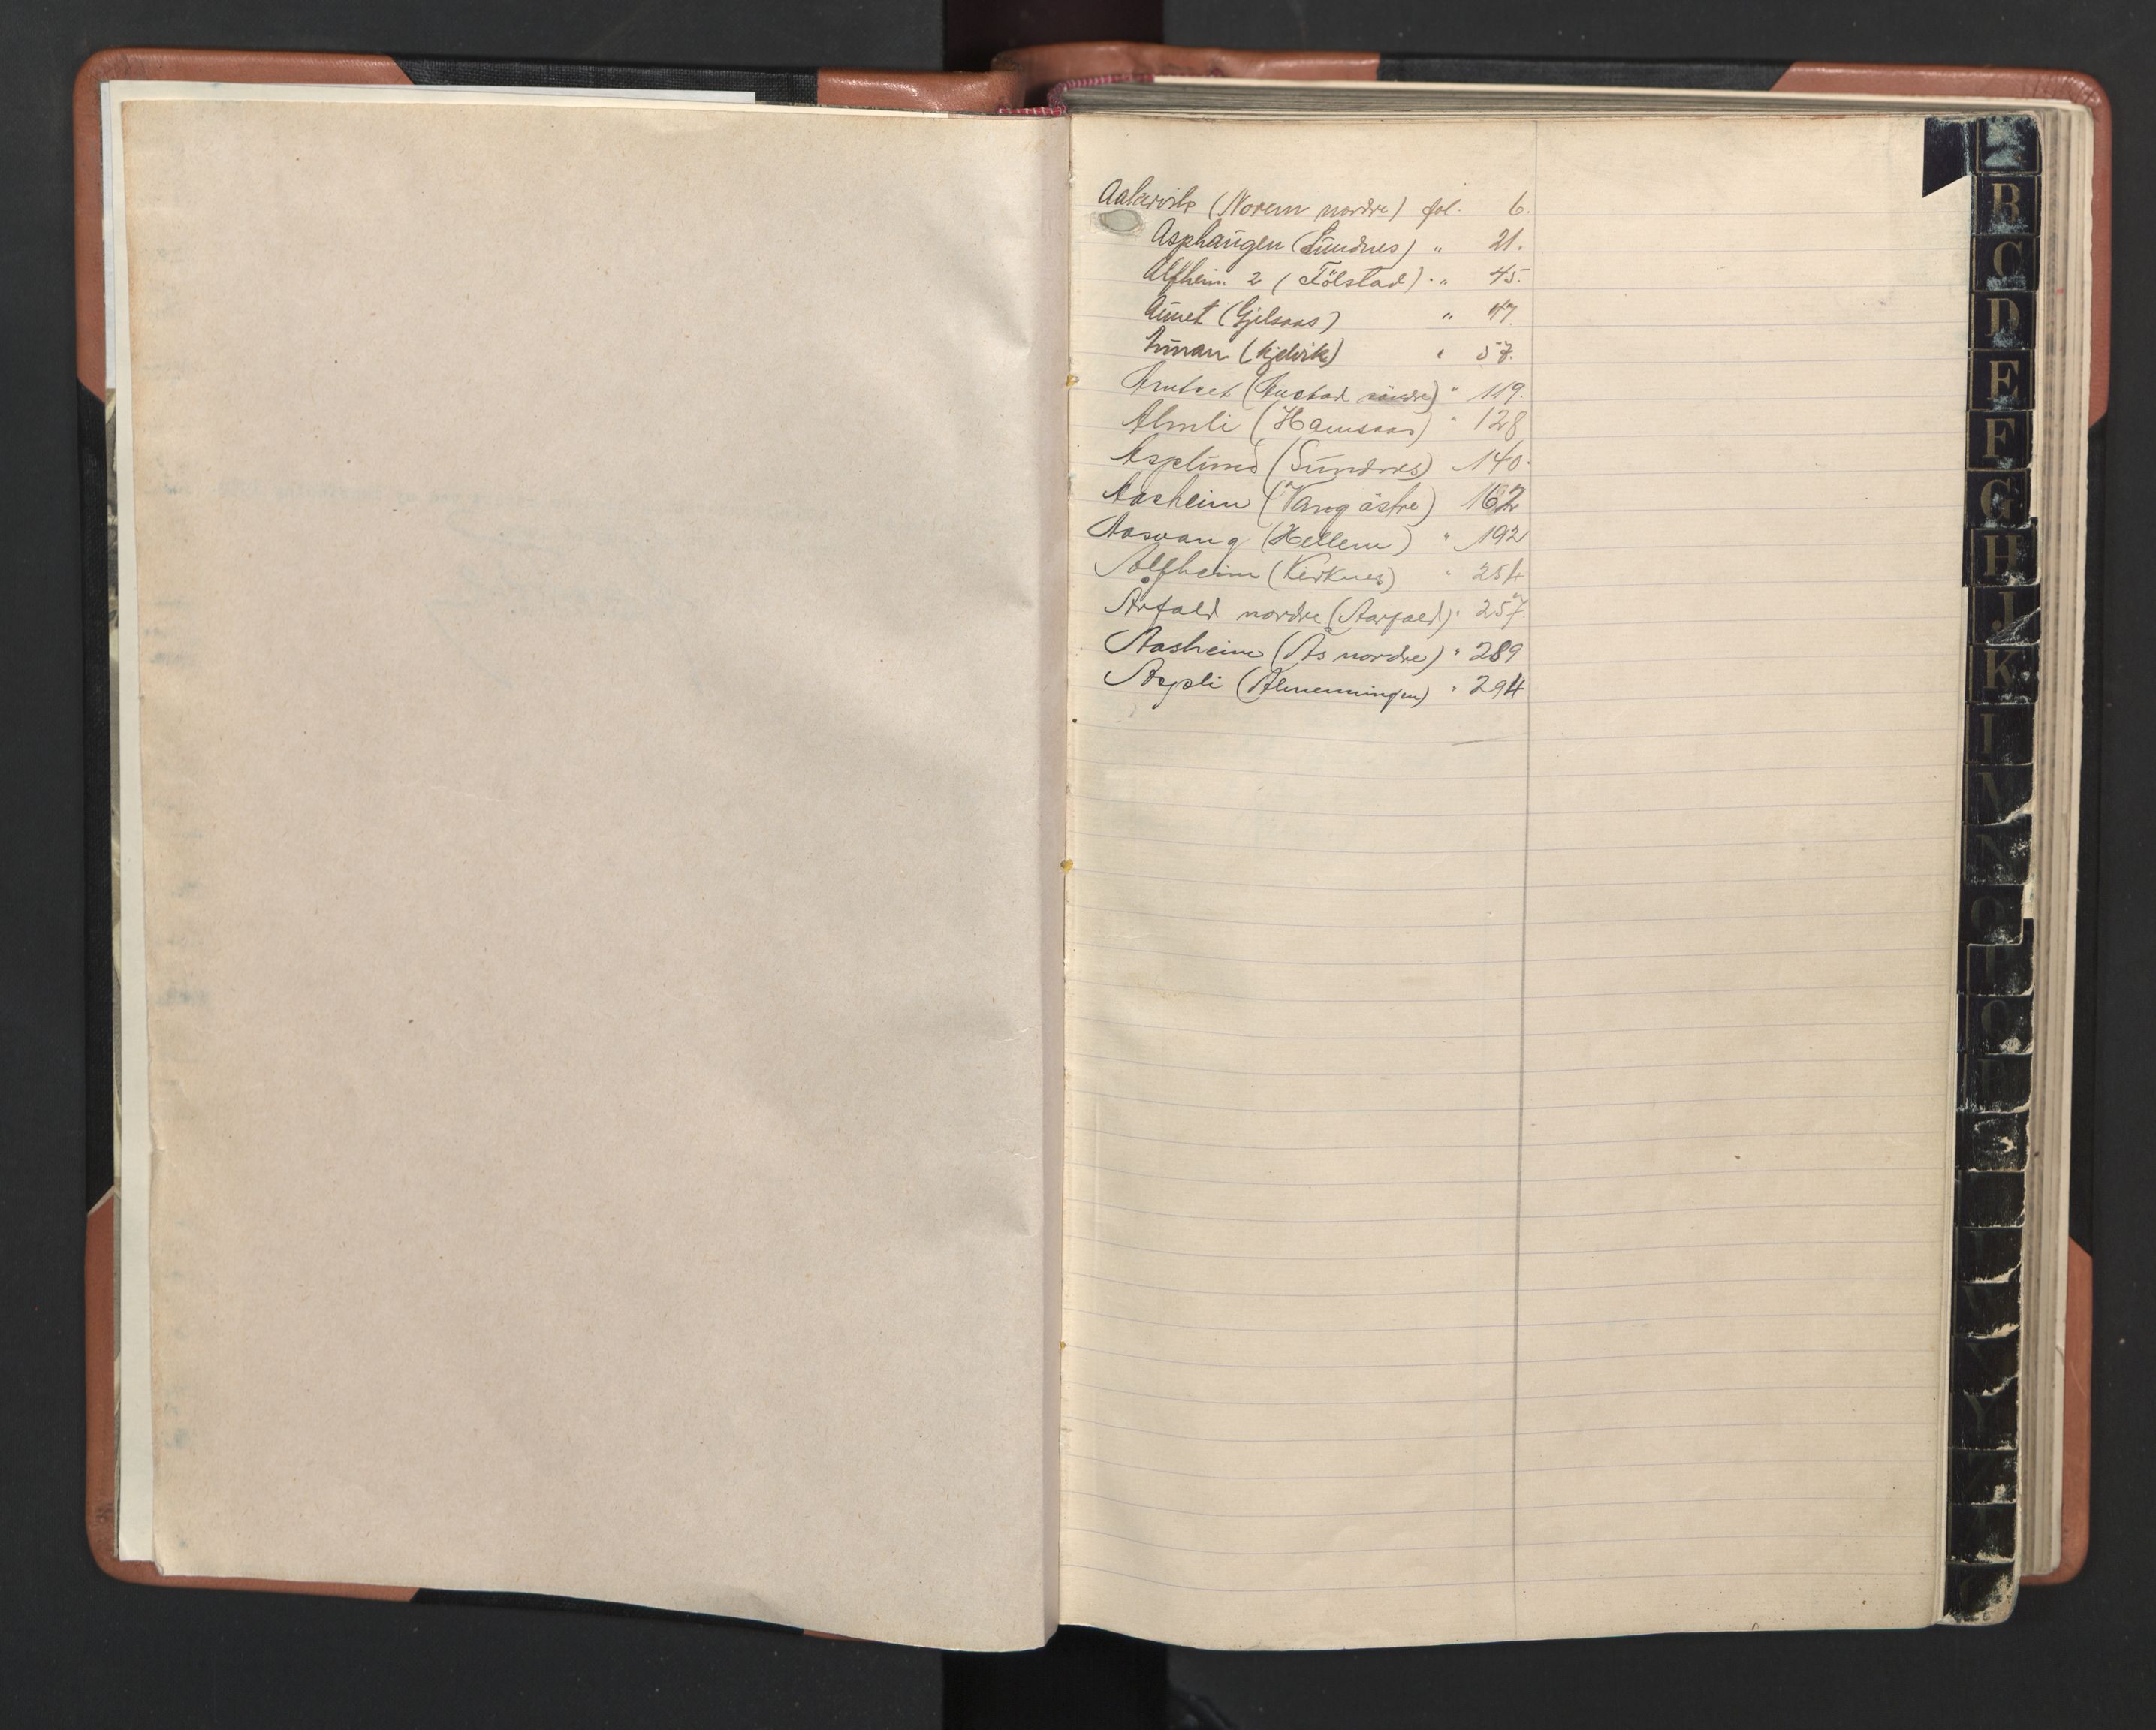 (Norem nordre) fol. 6.
Asphaugen (Sundnes) " 21.
Alfheim 2 (Fölstad) " 45.
Aunet (Gjelsaas) " 47.
(Kjelvik) " 57.
(Austad søndre) " 119.
Almli (Hamsaas) " 128
Asplund (Sundnes) 140.
Aasheim (Vang östre) 162
Aasvang (Hellem) " 192
Alfheim (Kirknes) " 254
Årfald nordre (Aarfald) " 257.
Aasheim (Ås nordre) " 289
Aspli (Almenningen) " 294
B
C
D
E
F
G
H
J
K